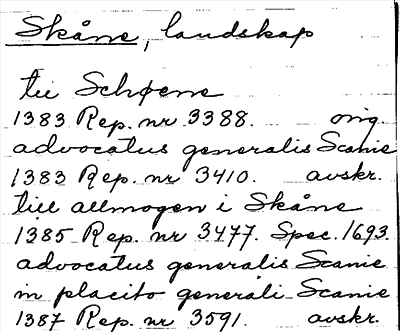 Skåne, landskap
till Schøene
1383 Rep. nr 3388. orig.
advocatus generalis Scanie
1383 Rep. nr 3410. avskr.
till allmogen i Skåne
1385 Rep. nr 3477. Spec. 1693.
advocatus generalis Scanie
in placito generali Scanie
1387 Rep. nr 3591. avskr.